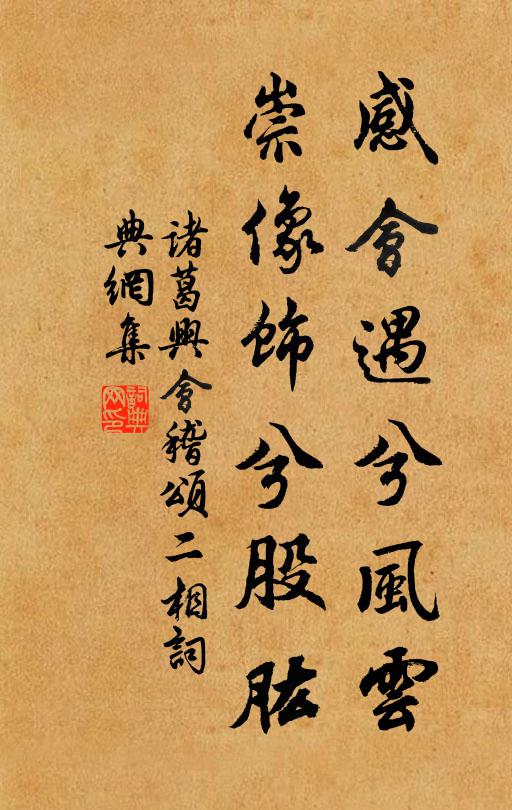 感會遇兮風雲
崇像飾兮股肱
諸葛興會稽頌二相詞
典網集
詞典網印